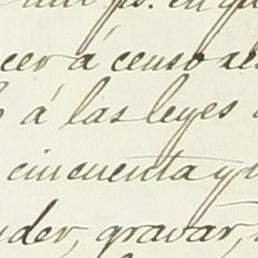 en
cer á censo
á las leyes
cincuenta y
der, gravar,